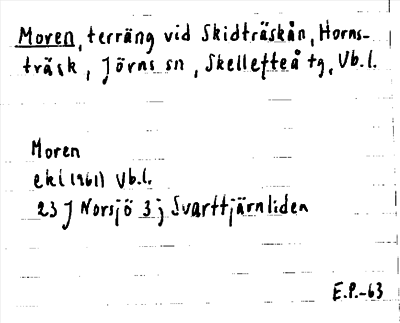 Moren, terräng vid Skidträskån, Horns-
träsk, Jörns sn, Skellefteå tg, Vb.l.
Moren
ekl (1961) Vb.l.
23 J Norsjö 3 j Svarttjärnliden
E.P.-63